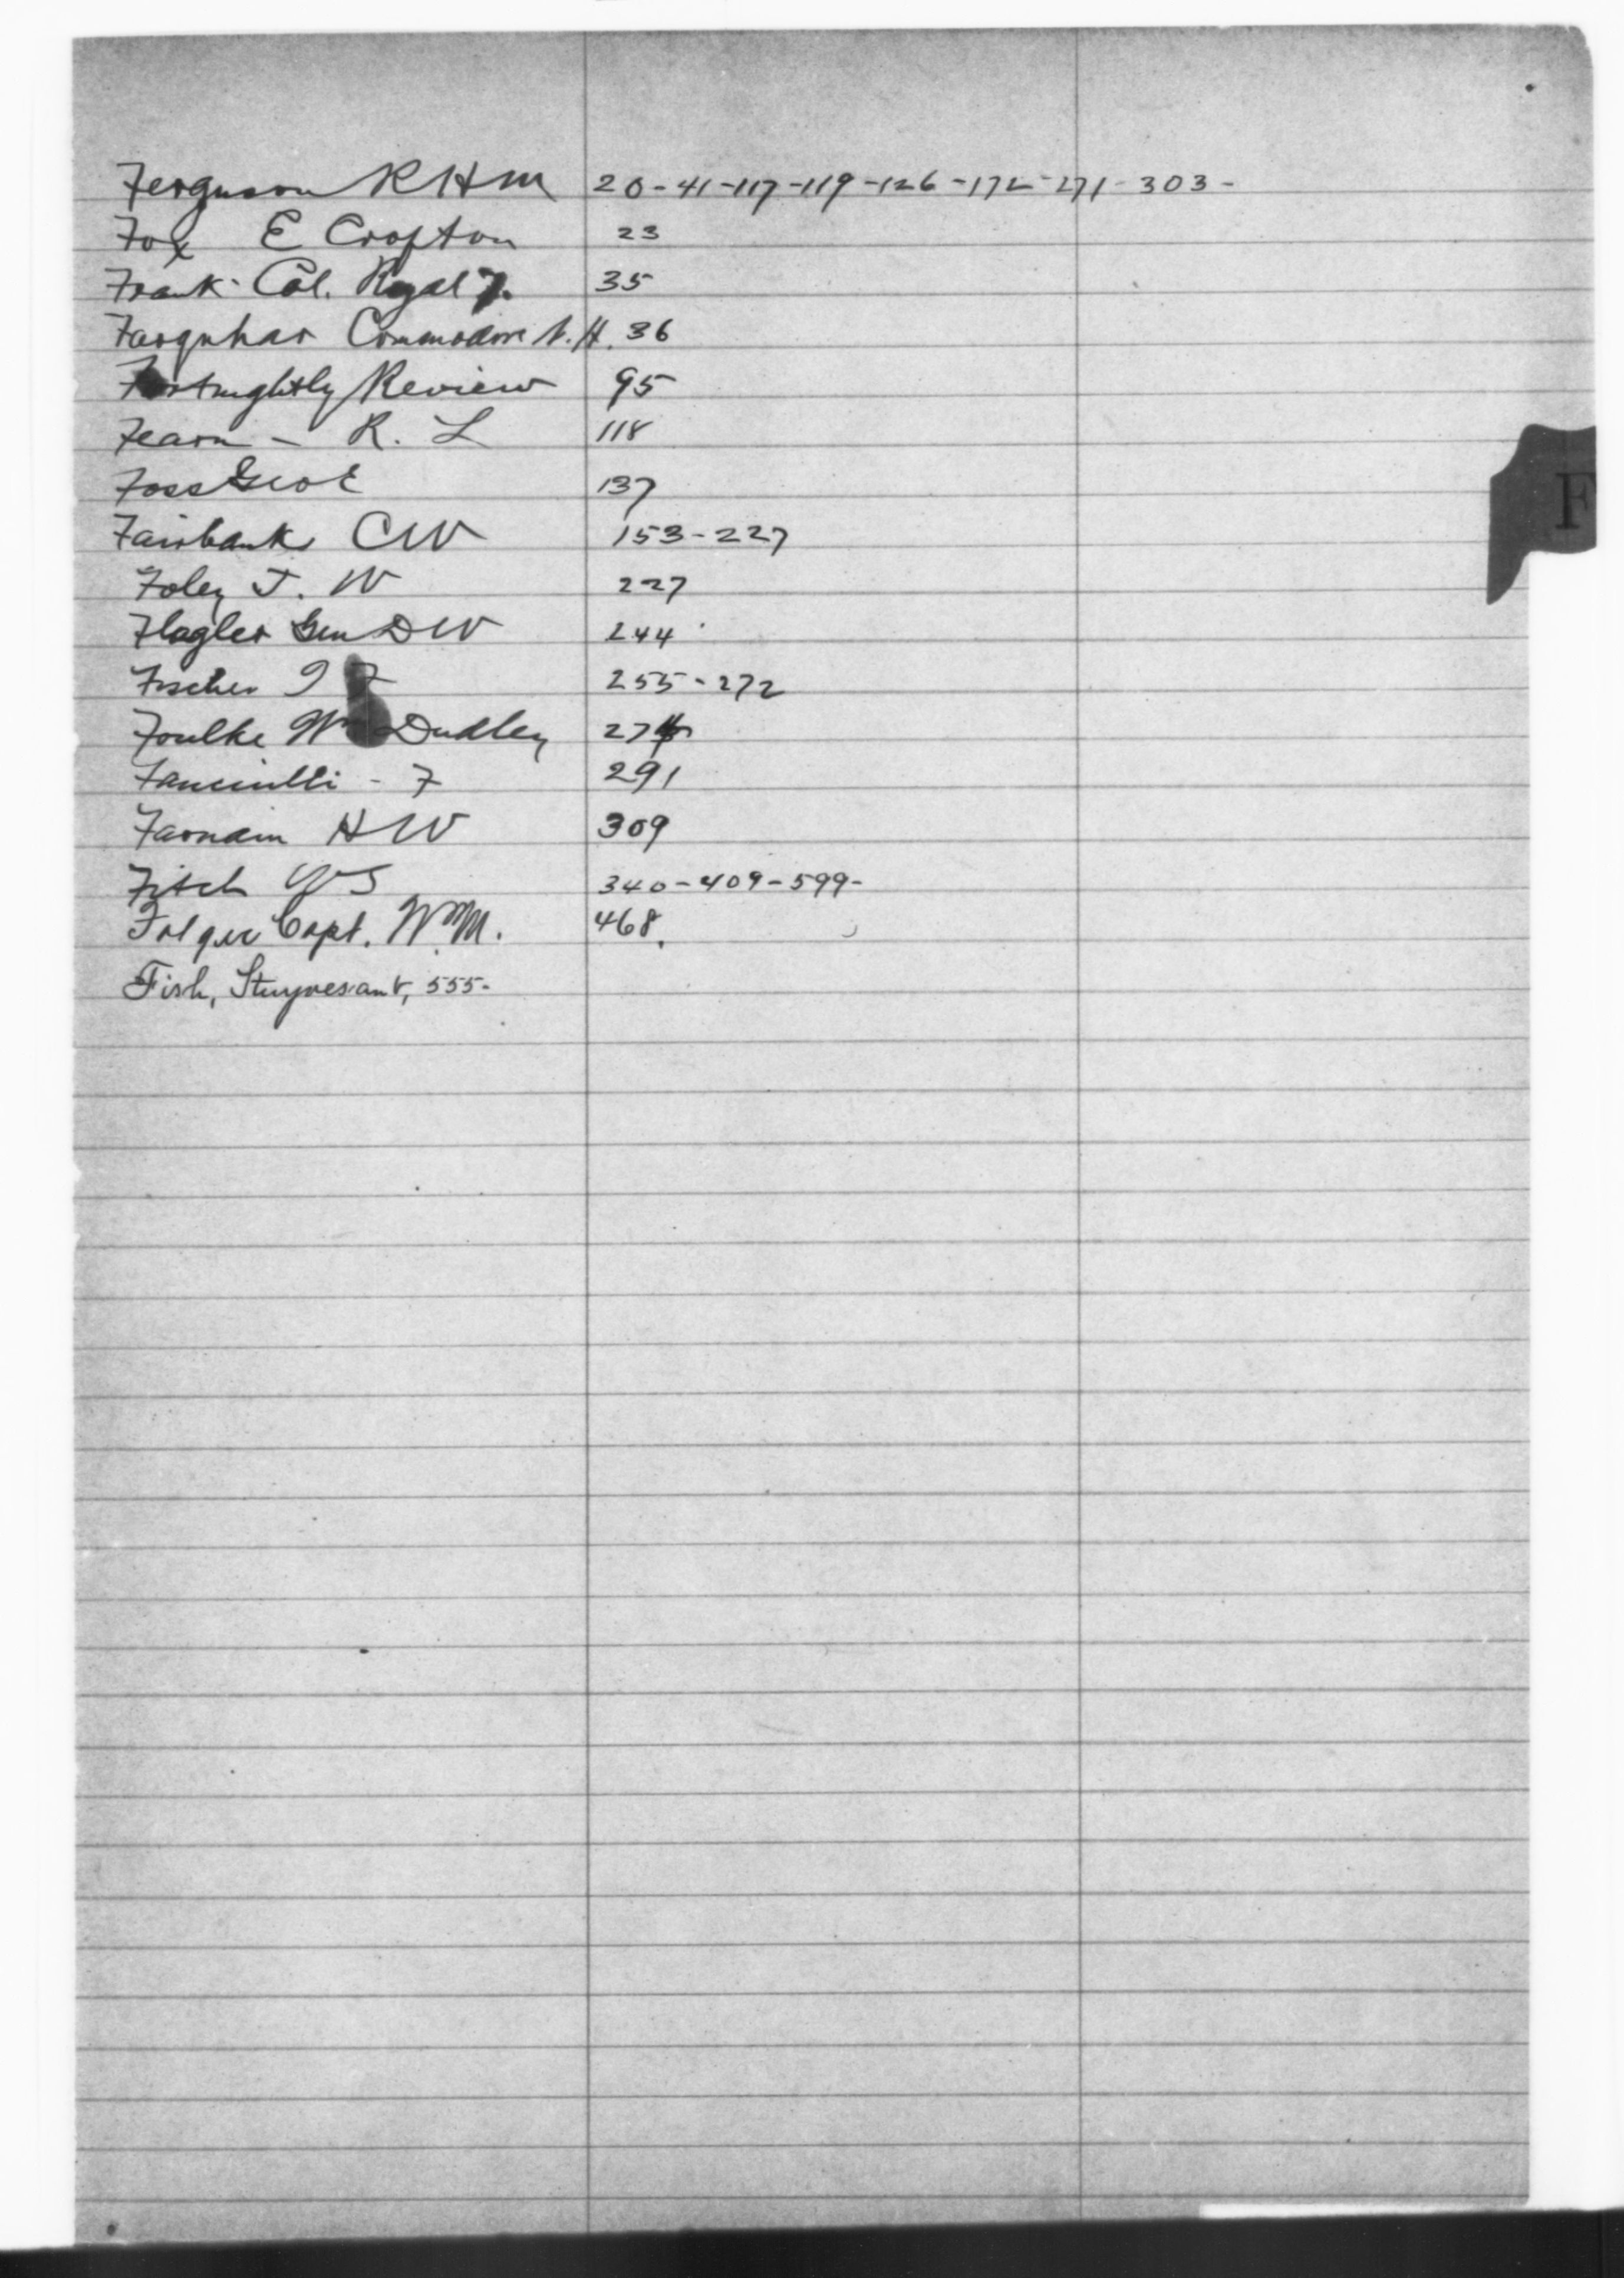 Ferguson R H M 20-41-117-119-126-172-271-303-
Fox E Crofton 23
Frank Col. Royal T. 35
Farquhar Commodore N.H. 36
Fortnightly Review 95
Fearn - R. L 118
Foss Geo E 137
Fairbanks C W 153-227
F
Foley J. W 227
Flagler Gen D W 244
Fischer I F 255-272
Foulke Wm Dudley 274
Fanciulli - F 291
Farnam H W 309
Fitch W S 340-409-599-
Folger Capt. W.M. 468.
Fish, Stuyvesant, 555-